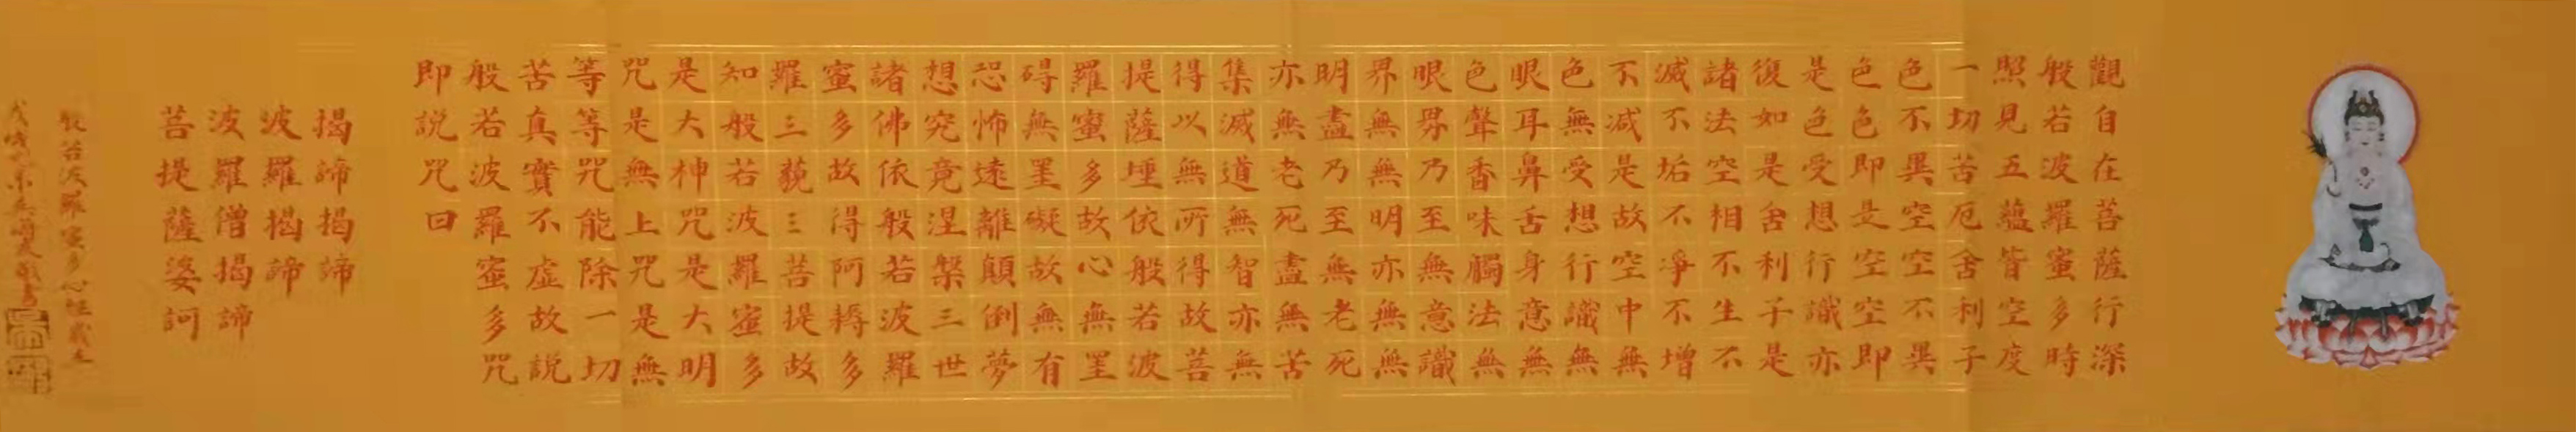 觀自在菩薩行深
般若波羅蜜多時
照見五蘊皆空度
一切苦厄舍利子
色不異空空不異
色色即是空空即
是色受想行識亦
復如是舍利子是
諸法空相不生不
滅不垢不淨不增
不減是故空中無
色無受想行識無
眼耳鼻舌身意無
色聲香味觸法無
眼界乃至無意識
界無無明亦無無
明盡乃至無老死
亦無老死盡無苦
集滅道無智亦無
得以無所得故菩
提薩埵依般若波
羅蜜多故心無罣
碍無罣礙故無有
恐怖遠離顛倒夢
想究竟涅槃三世
諸佛依般若波羅
蜜多故得阿耨多
羅三藐三菩提故
知般若波羅蜜多
是大神咒是大明
咒是無上咒是無
等等咒能除一切
苦真實不虛故說
般若波羅蜜多咒
即說咒曰
揭諦揭諦
波羅揭諦
波羅僧揭諦
菩提薩婆訶
般若波羅蜜多心經
戊戌